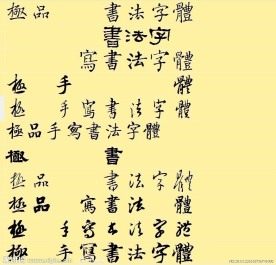 極品 書法字體
書法字
寫書法字體
極 手 體
極 手寫書法字體
極品手寫書法字體
極 書
極品 書法字體
極品 寫書法 體
極 手寫書法字體
極 手寫書法字體